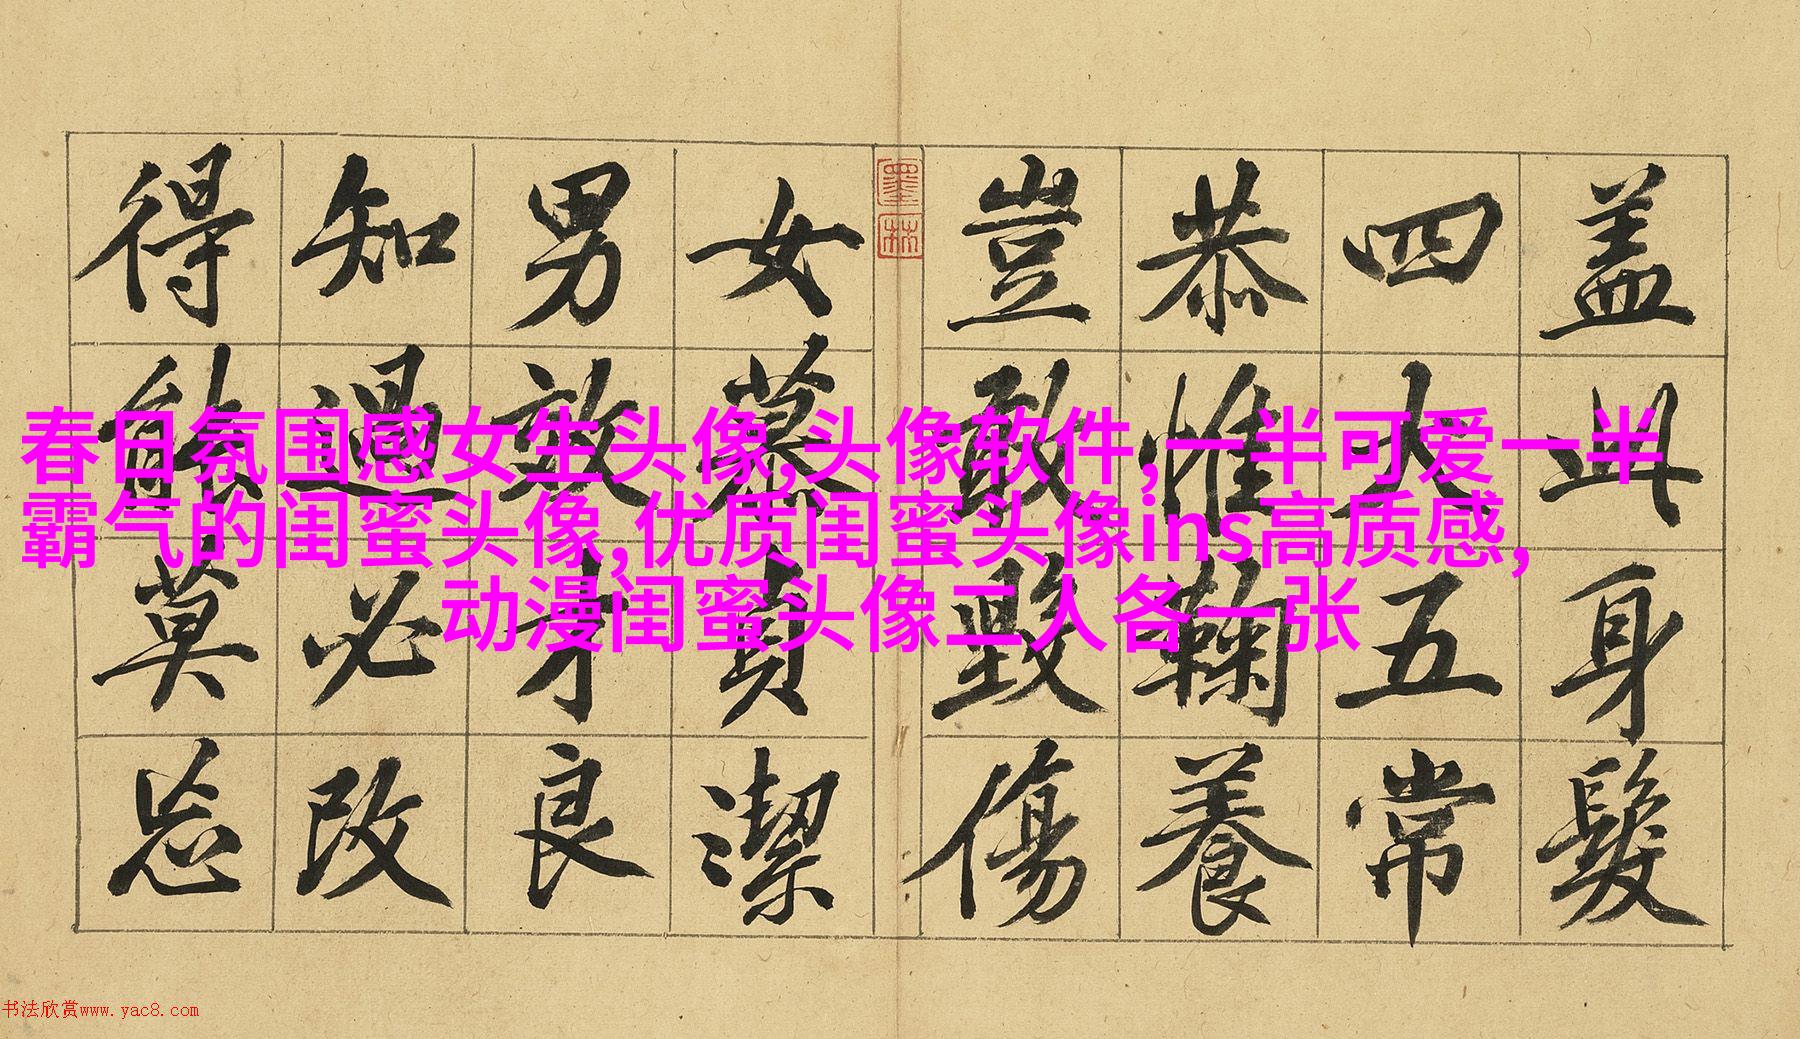 盖此身髮
四大五常
恭惟鞠養
豈敢毀傷
墨林
女慕貞潔
男效才良
知過必改
得能莫忘
春日氛围感女生头像,头像软件,一半可爱一半
霸气的闺蜜头像,优质闺蜜头像ins高质感,
动漫闺蜜头像二人各一张
书法欣赏www.yac8.com